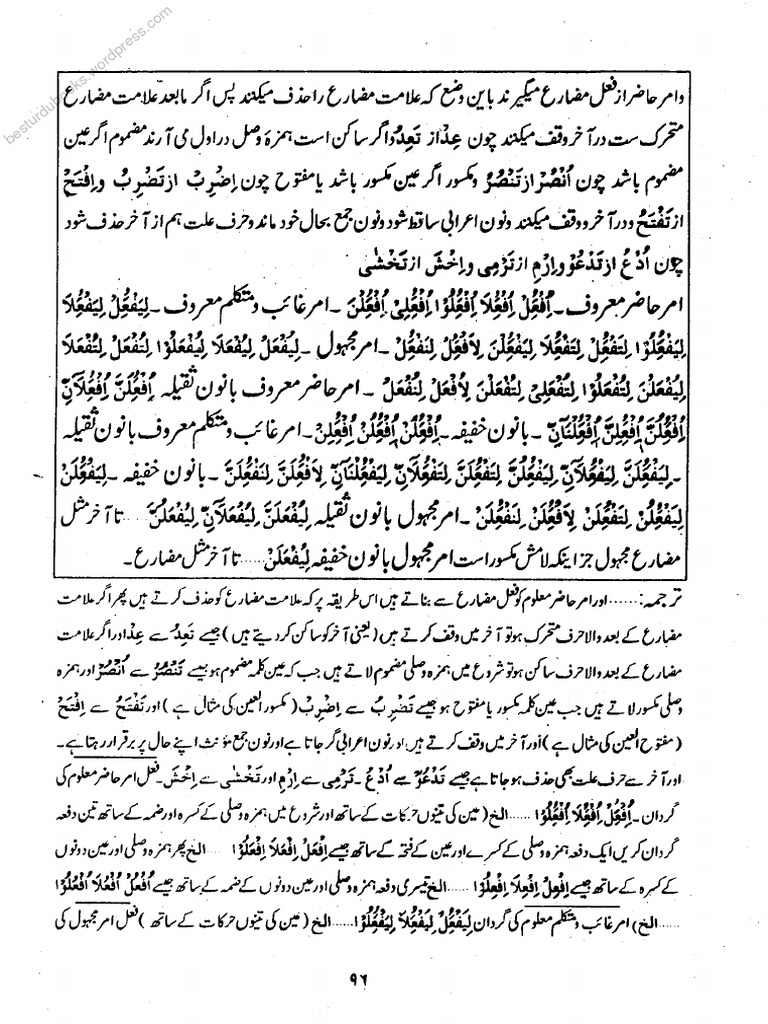 besturdubooks.wordpress.com
وامر حاضر از فعل مضارع میگیرند باین وضع که علامت مضارع را حذف میکنند پس اگر مابعد علامت مضارع
متحرک ست در آخر وقف میکنند چون عِدْ از تَعِدُ واگر ساکن است ہمزہ وصل در اول می آرند مضموم اگر عین
مضموم باشد چون اُنْصُرْ از تَنْصُرُ ومکسور اگر عین مکسور باشد یا مفتوح چون اِضْرِبْ از تَضْرِبُ واِفْتَحْ
از تَفْتَحُ ودر آخر وقف میکنند ونون اعرابی ساقط شود ونون جمع بحال خود ماند وحرف علت ہم از آخر حذف شود
چون اُدْعُ از تَدْعُوْ واِرْمِ از تَرْمِی واِخْشَ از تَخْشٰی
امر حاضر معروف ۔ اُفْعُلْ اُفْعُلَا اُفْعُلُوْا اُفْعُلِیْ اُفْعُلْنَ ۔ امر غائب ومتکلم معروف ۔ لِیَفْعُلْ لِیَفْعُلَا
لِیَفْعُلُوْا لِتَفْعُلْ لِتَفْعُلَا لِیَفْعُلْنَ لِاَفْعُلْ لِنَفْعُلْ ۔ امر مجہول ۔ لِیُفْعَلْ لِیُفْعَلَا لِیُفْعَلُوْا لِتُفْعَلْ لِتُفْعَلَا
لِیُفْعَلْنَ لِتُفْعَلُوْا لِتُفْعَلِیْ لِتُفْعَلْنَ لِاُفْعَلْ لِنُفْعَلْ ۔ امر حاضر معروف بانون ثقیلہ اُفْعُلَنَّ اُفْعُلَانِّ
اُفْعُلُنَّ اُفْعُلِنَّ اُفْعُلْنَانِّ ۔ بانون خفیفہ ۔ اُفْعُلَنْ اُفْعُلُنْ اُفْعُلِنْ ۔ امر غائب ومتکلم معروف بانون ثقیلہ
۔ لِیَفْعُلَنَّ لِیَفْعُلَانِّ لِیَفْعُلُنَّ لِتَفْعُلَنَّ لِتَفْعُلَانِّ لِیَفْعُلْنَانِّ لِاَفْعُلَنَّ لِنَفْعُلَنَّ ۔ بانون خفیفہ ۔ لِیَفْعُلَنْ
لِیَفْعُلُنْ لِتَفْعُلَنْ لِاَفْعُلَنْ لِنَفْعُلَنْ ۔ امر مجہول بانون ثقیلہ لِیُفْعَلَنَّ لِیُفْعَلَانِّ لِیُفْعَلُنَّ ...... تا آخر مثل
مضارع مجہول جز اینکہ لامش مکسور است امر مجہول بانون خفیفہ لِیُفْعَلَنْ ...... تا آخر مثل مضارع ۔
ترجمہ: ...... اور امر حاضر معلوم کو فعل مضارع سے بناتے ہیں اس طریقہ پر کہ علامت مضارع کو حذف کرتے ہیں پھر اگر علامت
مضارع کے بعد والا حرف متحرک ہو تو آخر میں وقف کرتے ہیں (یعنی آخر کو ساکن کر دیتے ہیں) جیسے تَعِدُ سے عِدْ اور اگر علامت
مضارع کے بعد والا حرف ساکن ہو تو شروع میں ہمزہ وصلی مضموم لاتے ہیں جب کہ عین کلمہ مضموم ہو جیسے تَنْصُرُ سے اُنْصُرْ اور ہمزہ
وصلی مکسور لاتے ہیں جب عین کلمہ مکسور یا مفتوح ہو جیسے تَضْرِبُ سے اِضْرِبْ (مکسور العین کی مثال ہے) اور تَفْتَحُ سے اِفْتَحْ
(مفتوح العین کی مثال ہے) اور آخر میں وقف کرتے ہیں اور نون اعرابی گر جاتا ہے اور نون جمع مؤنث اپنے حال پر برقرار رہتا ہے ۔
اور آخر سے حرف علت بھی حذف ہو جاتا ہے جیسے تَدْعُوْ سے اُدْعُ ۔ تَرْمِی سے اِرْمِ اور تَخْشٰی سے اِخْشَ ۔ فعل امر حاضر معلوم کی
گردان ۔ اُفْعُلْ اُفْعُلَا اُفْعُلُوْا ...... الخ (عین کی تینوں حرکات کے ساتھ اور شروع میں ہمزہ وصلی کے کسرہ اور ضمہ کے ساتھ تین دفعہ
گردان کریں ایک دفعہ ہمزہ وصلی کے کسرے اور عین کے فتحہ کے ساتھ جیسے اِفْعَلْ اِفْعَلَا اِفْعَلُوْا ...... الخ پھر ہمزہ وصلی اور عین دونوں
کے کسرہ کے ساتھ جیسے اِفْعِلْ اِفْعِلَا اِفْعِلُوْا ...... الخ تیسری دفعہ ہمزہ وصلی اور عین دونوں کے ضمہ کے ساتھ جیسے اُفْعُلْ اُفْعُلَا اُفْعُلُوْا
...... الخ) امر غائب ومتکلم معلوم کی گردان لِیَفْعُلْ لِیَفْعُلَا لِیَفْعُلُوْا ...... الخ (عین کی تینوں حرکات کے ساتھ) فعل امر مجہول کی
۹۶